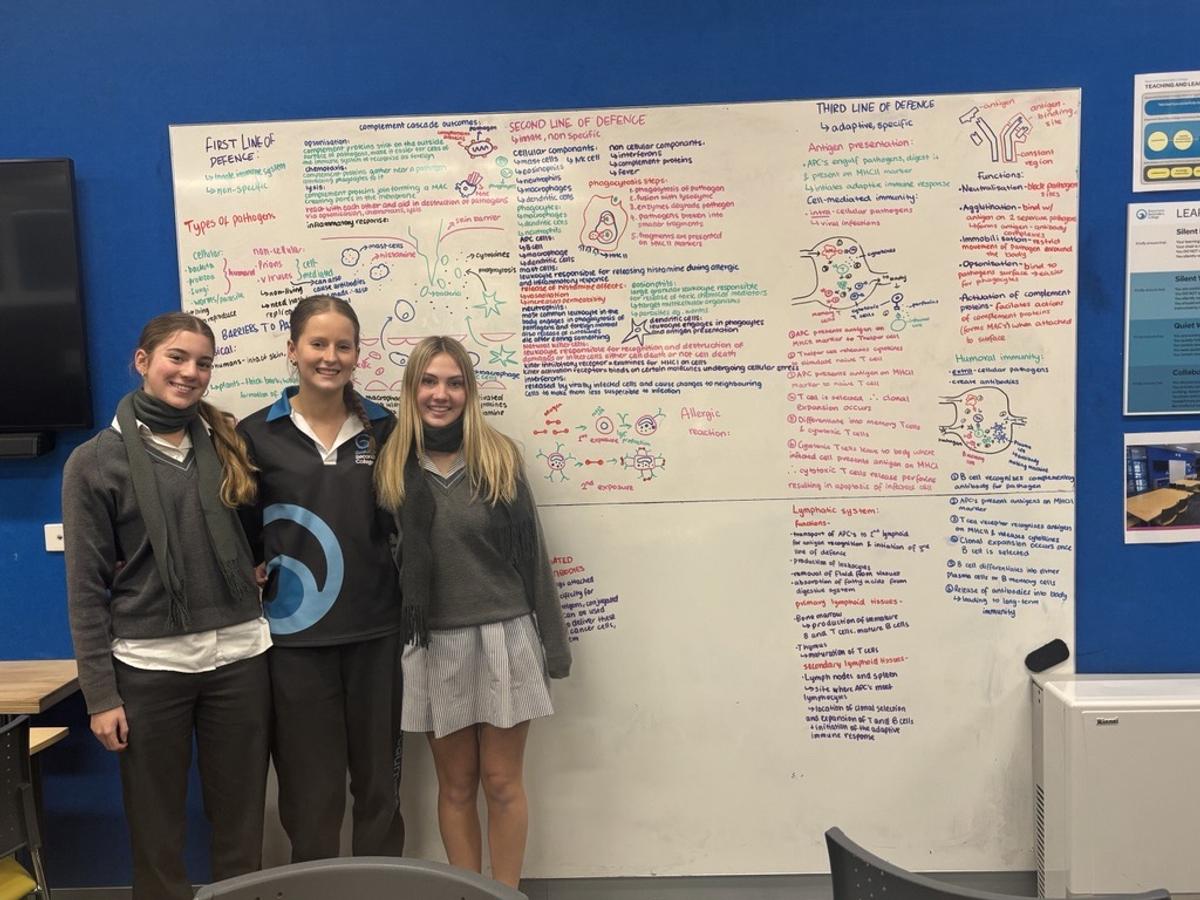 FIRST LINE OF
DEFENCE:
↳ innate immune system
↳ non-specific
Types of pathogens
cellular:
· bacteria
· protozoa
· fungi
· worms/parasite
non-cellular:
· Prions
· viruses
cell-
mediated
↳ non-living
BARRIERS TO
complement cascade outcomes:
opsonisation:
complement proteins stick on the outside
surface of pathogens, make it easier for cells of
immune system to recognise as foreign
chemotaxis:
complement proteins gather near a pathogen
attracting phagocytes to it
lysis:
complement proteins join forming a MAC
creating pores in the membrane
react with each other and aid in destruction of pathogens
via opsonisation, chemotaxis, lysis
inflammatory response:
pathogen
skin barrier
mast cells
histamine
cytokines
phagocytosis
bacteria
SECOND LINE OF DEFENCE
↳ innate, non specific
cellular components:
↳ mast cells ↳ NK cell
↳ eosinophils
↳ neutrophils
↳ macrophages
↳ dendritic cells
phagocytes:
↳ macrophages
↳ dendritic cells
↳ neutrophils
APC cells:
↳ B cell
↳ macrophage
↳ dendritic cells
mast cells:
leukocyte responsible for releasing histamine during allergic
and inflammatory response
release of histamine affects:
↳ vasodilation
↳ increase permeability
neutrophils:
most common leukocyte in the
body engages in phagocytosis of
pathogens and foreign material
also release of cytokines
die after eating something
natural killer cells:
leukocyte responsible for recognition and destruction of
damaged or infected cells either cell death or not cell death
killer inhibitory receptor = examines for MHC1 on cells
killer activation receptors binds on certain molecules undergoing cellular stress
interferons:
released by virally infected cells and cause changes to neighbouring
cells to make them less susceptible to infection
non cellular components:
↳ interferons
↳ complement proteins
↳ fever
phagocytosis steps:
1. phagocytosis of pathogen
2. fusion with lysozyme
3. enzymes degrade pathogen
4. pathogens broken into
smaller fragments
5. fragments are presented
on MHCII markers
MHCII
eosinophils:
large granular leukocyte responsible
for release of toxic chemical mediators
↳ target multicellular organisms
↳ parasites eg. worms
dendritic cells:
leukocyte engages in phagocytes
and antigen presentation
allergen
1st exposure
2nd exposure
Allergic
reaction:
THIRD LINE OF DEFENCE
↳ adaptive, specific
Antigen presentation:
· APC's engulf pathogens, digest it
& present on MHCII marker
↳ initiates adaptive immune response
Cell-mediated immunity:
- intra-cellular pathogens
↳ viral infections
① APC presents antigen on
MHCII marker to T helper cell
② T helper cell releases cytokines
to stimulate naive T cell
③ APC presents antigen on MHCII
marker to naive T cell
④ T cell is selected ∴ clonal
expansion occurs
⑤ Differentiate into memory T cells
& cytotoxic T cells
⑥ Cytotoxic T cells leave to body where
infected cell presents antigen on MHCI
∴ cytotoxic T cells release perforins
resulting in apoptosis of infected cell
antigen
antigen-
binding
site
constant
region
Functions:
· Neutralisation - block pathogen
sites
· Agglutination - bind w/
antigen on 2 separate pathogens
↳ forms antigen-antibody
complexes
· Immobilisation - restrict
movement of pathogen around
the body
· Opsonisation - bind to
pathogens surface → easier
for phagocytes
· Activation of complement
proteins - facilitates action
of complement proteins
(forms MAC's) when attached
to surface
Humoral immunity:
- extra-cellular pathogens
- create antibodies
① B cell recognises complementary
antibody for pathogen
② APC's present antigens on MHCII
marker
③ T cell receptor recognises antigen
on MHCII & releases cytokines
④ Clonal expansion occurs once
B cell is selected
⑤ B cell differentiates into either
Plasma cells or B memory cells
⑥ Release of antibodies into body
↳ leading to long-term
immunity
Lymphatic system:
functions-
· transport of APC's to 2nd lymphoid
for antigen recognition & initiation of 3rd
line of defence
· production of leukocytes
· removal of fluid from tissues
· absorption of fatty acids from
digestive system
primary lymphoid tissues-
· Bone marrow
↳ production of immature
B and T cells, mature B cells
· Thymus
↳ maturation of T cells
secondary lymphoid tissues-
· Lymph nodes and spleen
↳ site where APC's meet
lymphocytes
↳ location of clonal selection
and expansion of T and B cells
+ initiation of the adaptive
immune response
can be used
deliver these
cancer cells,
Secondary
College
TEACHING AND LEA
LEA
Silent
Silent
Quiet
Collabo
Rinnai